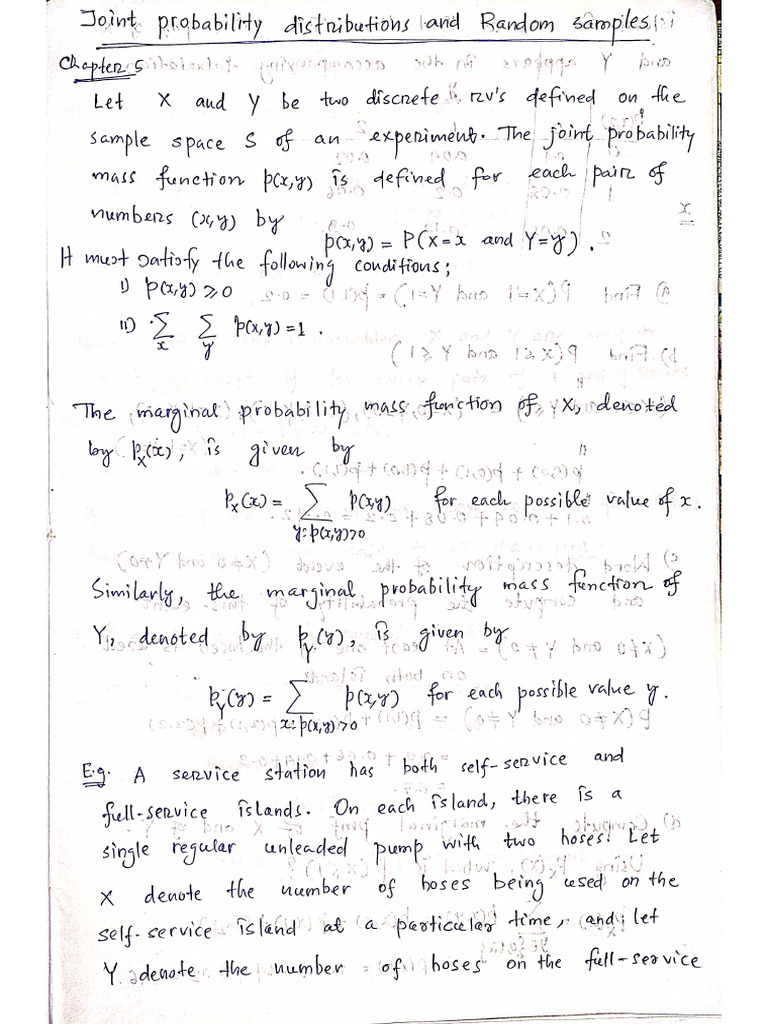 Joint probability distributions and Random samples.
Chapter 5
Let X and Y be two discrete rv's defined on the
sample space S of an experiment. The joint probability
mass function p(x,y) is defined for each pair of
numbers (x,y) by
p(x,y) = P(X=x and Y=y).
It must satisfy the following conditions;
i) p(x,y) ≥ 0
ii) ∑ₓ ∑ᵧ p(x,y) = 1.
The marginal probability mass function of X, denoted
by pₓ(x), is given by
pₓ(x) = ∑ p(x,y) for each possible value of x.
y: p(x,y)>0
Similarly, the marginal probability mass function of
Y, denoted by p_Y(y), is given by
p_Y(y) = ∑ p(x,y) for each possible value y.
x: p(x,y)>0
E.g. A service station has both self-service and
full-service islands. On each island, there is a
single regular unleaded pump with two hoses. Let
X denote the number of hoses being used on the
self-service island at a particular time, and let
Y denote the number of hoses on the full-service